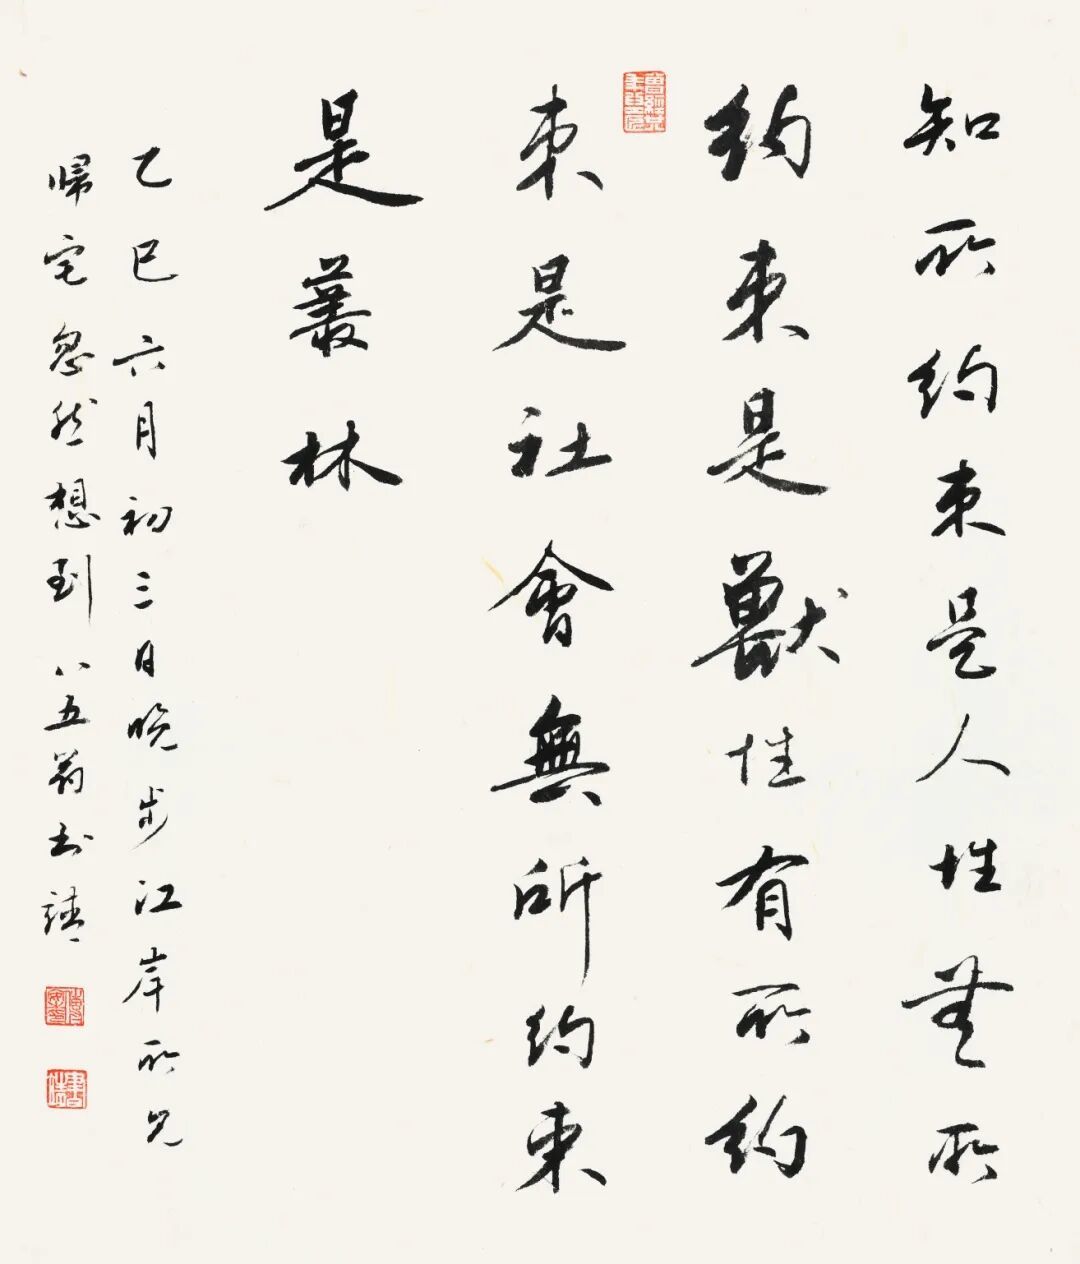 知所約束是人性無所
約束是獸性有所約
束是社會無所約束
是叢林
乙巳六月初三日晚步江岸所見
歸宅忽然想到八五翁書